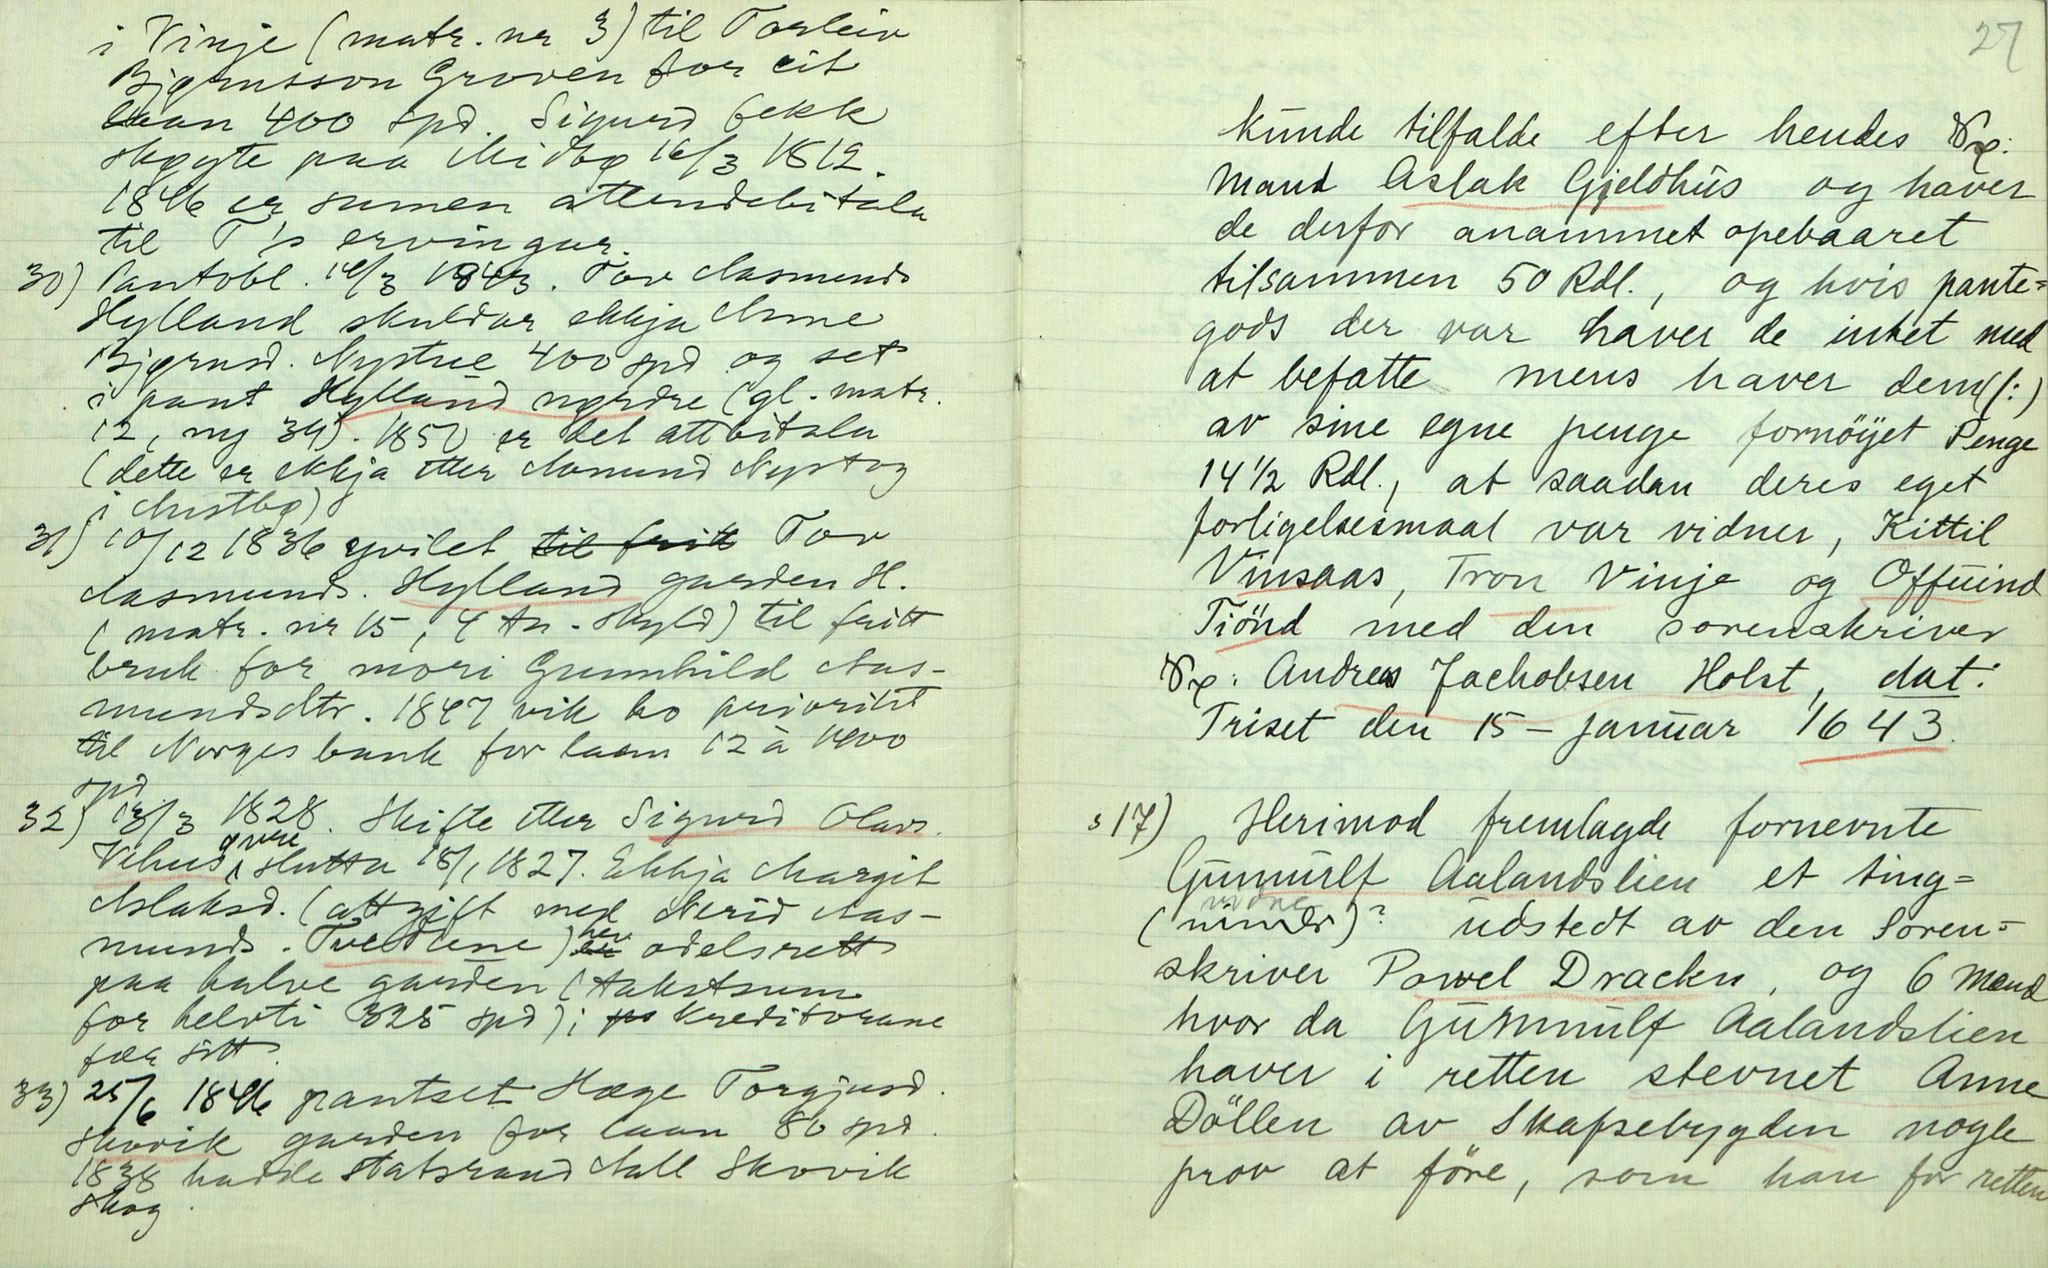 i Vinje (matr. nr 3) til Torleiv
Bjørnsson Groven for eit
laan 400 spd. Sigurd fekk
skøyte paa Midbø 16/3 1812.
1846 er sumen attendebitala
til T's ervingar.
30) Pantobl. 14/3 1843. Tov Aasmunds
Hylland skuldar ekkja Anne
Bjørnsd. Nystue 400 spd og set
i pant Hylland nørdre (gl. matr.
12, ny 34). 1850 er det attbitala
(dette er ekkja etter Aamund Nystog
i Austbø)
31) 10/12 1836 yvilet til fritt Tov
Aasmunds. Hylland garden H.
(matr. nr 15, 4 tn. skyld) til fritt
bruk for mori Gunnhild Aas-
mundsdtr. 1847 vik ho prioritet
til Norges bank for laan 12 à 1400
spd
32) 13/3 1828. Skifte etter Sigurd Olavs.
Vehus øvre slutta 18/1 1827. Ekkja Margit
Aslaksd. (attgift med Nerid Aas-
munds. Tveitene) er hev odelsrett
paa halve garden (takstsum
for helvti 325 spd) i kreditorane
fær sitt.
33) 25/6 1846 pantset Hæge Torgjusd.
Skovik garden for laan 80 spd.
1838 hadde statsraad Aall Skovik
skog.
27
kunde tilfalde efter hendes
mand Aslak Gjeldhus og haver
de derfor anammet opebaaret
tilsammen 50 Rdl., og hvis pante=
gods der var haver de intet med
at befatte mens haver dem (/:)
av sine egne penge fornöyet Penge
14 1/2 Rdl., at saadan deres eget
forligelsesmaal var vidner, Kittil
Vinsaas, Tron Vinje og Offuind
Tiönd med den sorenskriver
Andreas Jachobsen Holst, dat:
Triset den 15 – januar 1643.
s 17) Herimod fremlagde fornevnte
Gunnulf Aalandslien et ting=
vidne
( )? udstedt av den Soren=
skriver Powel Dracken, og 6 mænd
hvor da Gunnulf Aalandslien
haver i retten stevnet Anne
Döllen av Skafsebygden nogle
prov at före, som han for retten